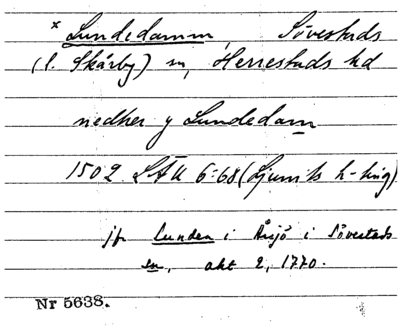 x Lundedamm, Sövestads
(l. Skårby) sn, Herrestads hd
nedher y Lundedam
1502 LÅU 6:68 (Ljunits h-ting)
jfr Lunden i Årsjö i Sövestads
sn, akt 2, 1770.
Nr 5638.